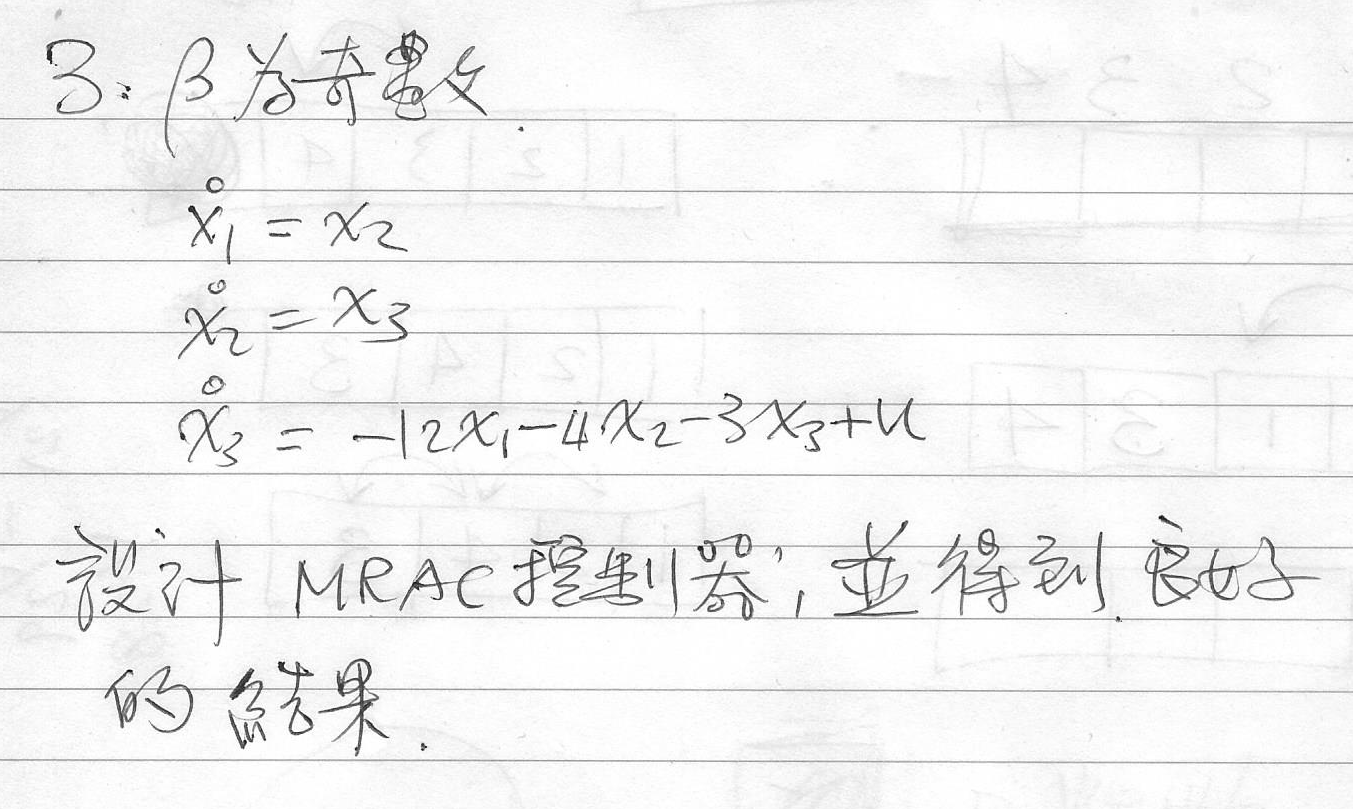 3. β為奇數.
ẋ₁ = x₂
ẋ₂ = x₃
ẋ₃ = -12x₁-4x₂-3x₃+u
設計 MRAC控制器, 並得到良好
的結果.